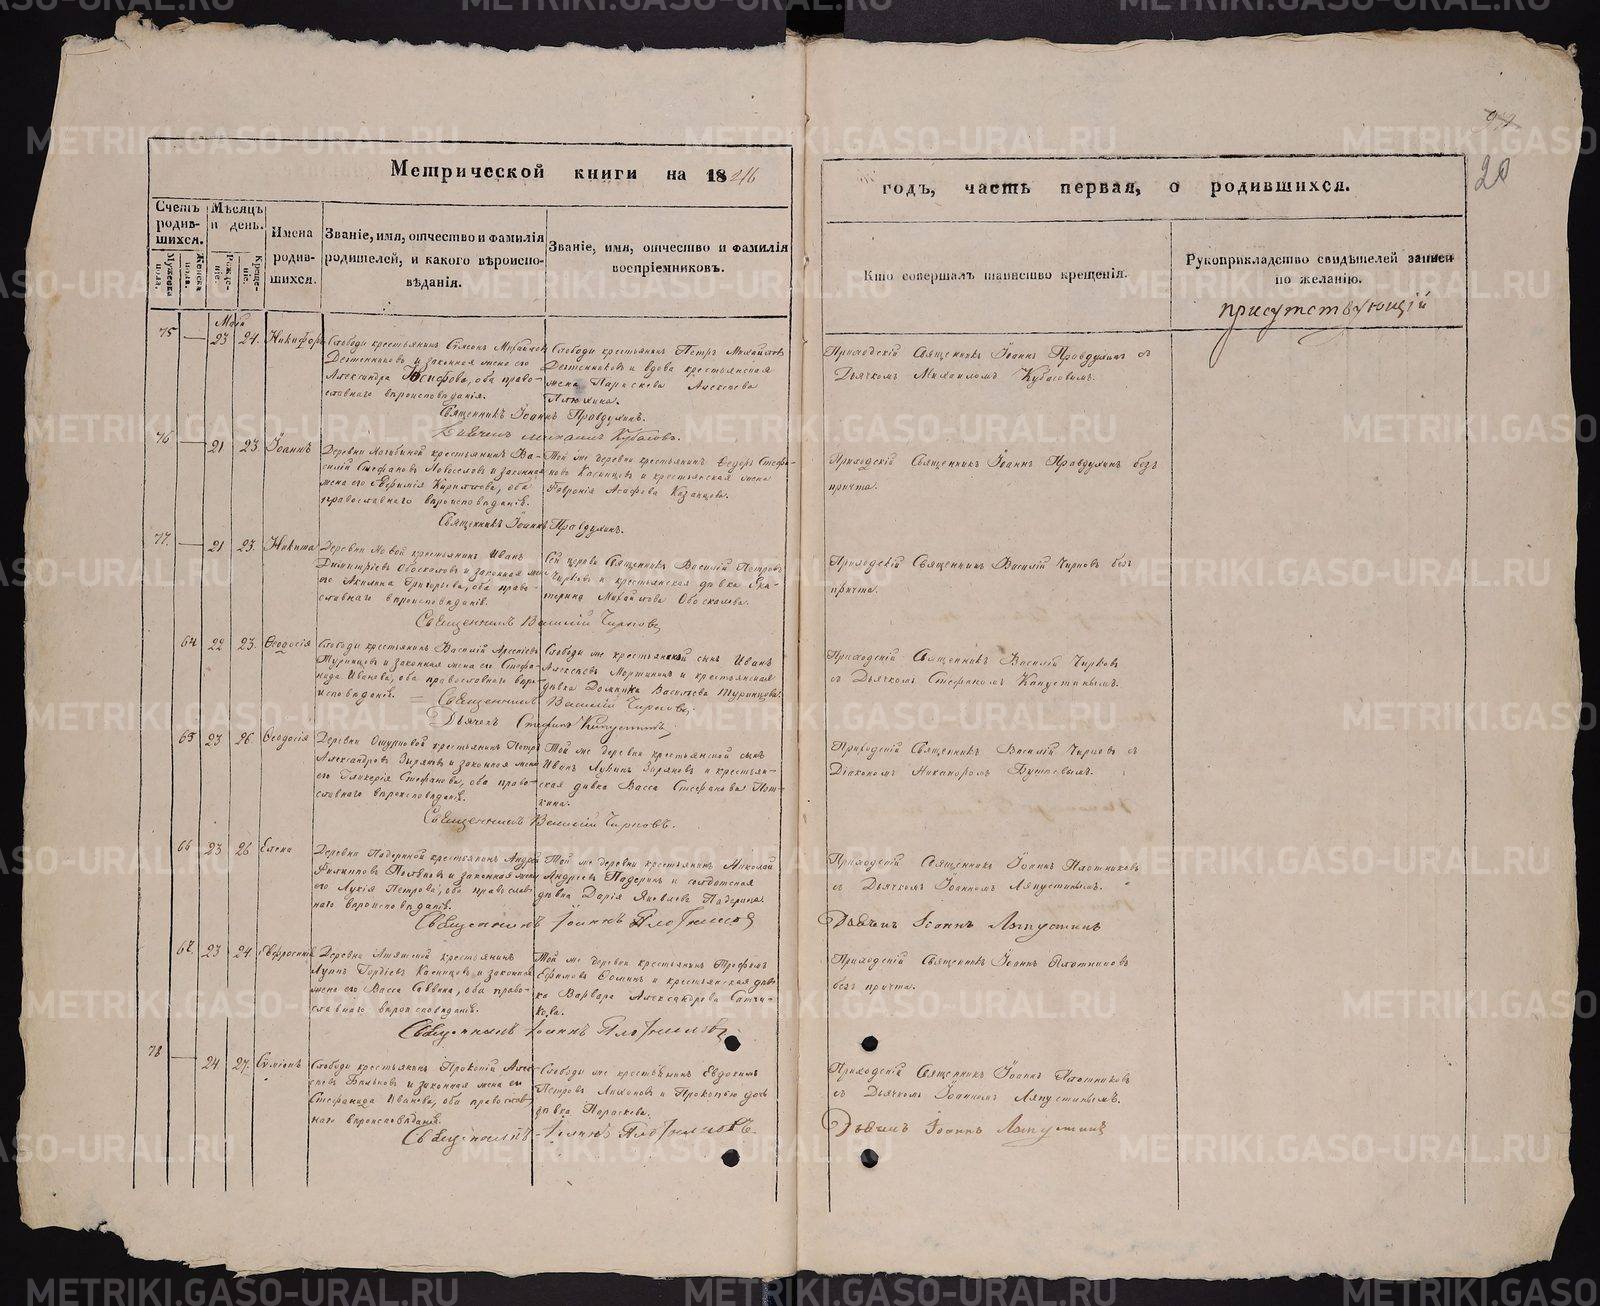 Метрической книги на 1846
годъ, часть первая, о родившихся.
20
Счетъ родившихся.
Мужеска пола.
Женска пола.
Мѣсяцъ и день.
Рожденіе.
Крещеніе.
Имена родившихся.
Званіе, имя, отчество и фамилія
родителей, и какого вѣроиспо-
вѣданія.
Званіе, имя, отчество и фамилія
воспріемниковъ.
Кто совершалъ таинство крещенія.
Рукоприкладство свидѣтелей записи
по желанію.
присутствующій
Май
75 — 23 24. Никифоръ
Слободы крестьянинъ Михайловъ
Детенниковъ и законная жена его
Александра оба право-
славнаго вѣроисповѣданія.
Слободы крестьянинъ Петръ Михайловъ
Детенниковъ и вдова крестьянская
жена Параскева Алексеева
Приходскій Священникъ Іоаннъ Правдухинъ съ
Дьячкомъ Михаиломъ Кубасовымъ.
Священникъ Іоаннъ Правдухинъ.
Дьячекъ Михаилъ Кубасовъ.
76 — 21 23 Іоаннъ
Деревни крестьянинъ Ва-
силій Стефановъ Новоселовъ и законная
жена его Евфимія Кирилова, оба
православнаго вѣроисповѣданія.
Той же деревни крестьянинъ Ѳедоръ Стефа-
новъ Касинцовъ и крестьянская жена
Февронія Казанцова.
Приходскій Священникъ Іоаннъ Правдухинъ безъ
причта.
Священникъ Іоаннъ Правдухинъ.
77. — 21 23. Никита
Деревни Новой крестьянинъ Иванъ
Димитріевъ Обоскаловъ и законная жена
его Акилина Григорьева, оба право-
славнаго вѣроисповѣданія.
Сей церкви Священникъ Василій Петровъ
Чирковъ и крестьянская дѣвка Ека-
терина Михайлова Обоскалова.
Приходскій Священникъ Василій Чирковъ безъ
причта.
Священникъ Василій Чирковъ
64 22 23. Ѳеодосія
Слободы крестьянинъ Василій Арсеніевъ
Туринцовъ и законная жена его Стефа-
нида Иванова, оба православнаго вѣро-
исповѣданія.
Слободы же крестьянскій сынъ Иванъ
Алексеевъ Мартиновъ и крестьянская
дѣвка Домника Васильева Туринцова.
Приходскій Священникъ Василій Чирковъ
съ Дьячкомъ Стефаномъ Капустинымъ.
Священникъ Василій Чирковъ
Дьячекъ Стефанъ Капустинъ
65 23 26 Ѳеодосія
Деревни Ошурковой крестьянинъ Петръ
Александровъ Зыряновъ и законная жена
его Гликерія Стефанова, оба право-
славнаго вѣроисповѣданія.
Той же деревни крестьянской сынъ
Иванъ Лукинъ Зыряновъ и крестьян-
ская дѣвка Васса Стефанова
Приходскій Священникъ Василій Чирковъ съ
Діакономъ Никаноромъ
Священникъ Василій Чирковъ.
66 23 26 Елена
Деревни Падериной крестьянинъ Андрей
Филипповъ и законная жена
его Лукія Петрова, оба православ-
наго вѣроисповѣданія.
Той же деревни крестьянинъ Николай
Андреевъ Падеринъ и солдатская
дѣвка Дарія Яковлева Падерина.
Приходскій Священникъ Іоаннъ Плотниковъ
съ Дьячкомъ Іоанномъ Ляпустинымъ.
Священникъ Іоаннъ Плотниковъ
Дьячекъ Іоаннъ Ляпустинъ
67. 23 24. Евфросинія
Деревни крестьянинъ
Гордіевъ Касинцовъ и законная
жена его Васса Саввина, оба право-
славнаго вѣроисповѣданія.
Той же деревни крестьянинъ Трофимъ
Ефимовъ Ѳоминъ и крестьянская дѣв-
ка Варвара Александрова
Приходскій Священникъ Іоаннъ Плотниковъ
безъ причта.
Священникъ Іоаннъ Плотниковъ
78 — 24 27. Сѵмеонъ
Слободы крестьянинъ Прокопій Алек-
сеевъ и законная жена его
Стефанида Иванова, оба православ-
наго вѣроисповѣданія.
Слободы же крестьянинъ Евдокимъ
Петровъ и Прокопью дочь
дѣвка Параскева.
Приходскій Священникъ Іоаннъ Плотниковъ
съ Дьячкомъ Іоанномъ Ляпустинымъ.
Священникъ Іоаннъ Плотниковъ
Дьячекъ Іоаннъ Ляпустинъ
METRIKI.GASO-URAL.RU